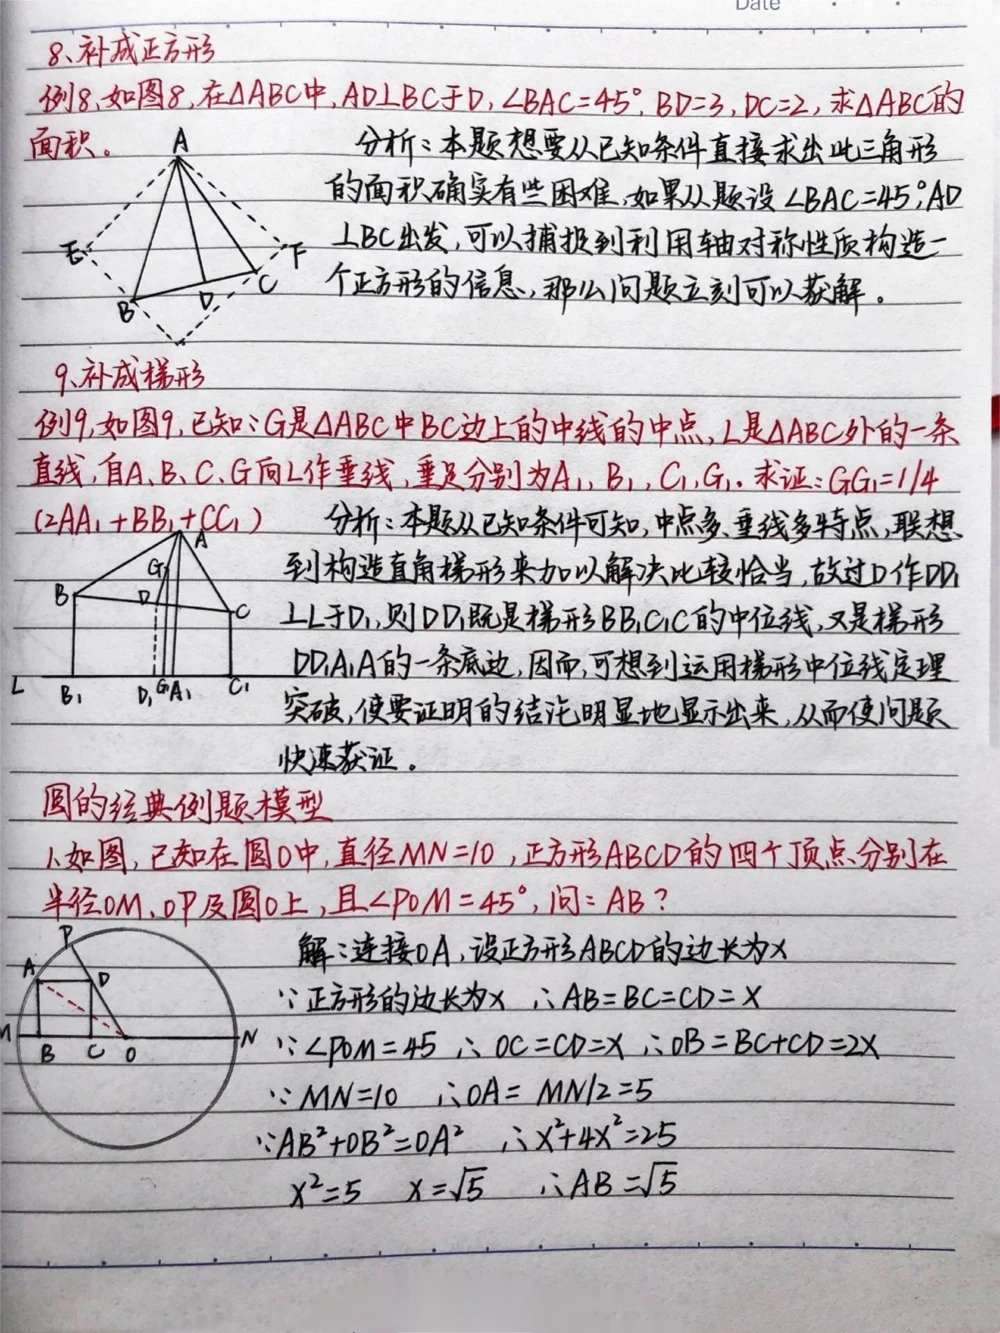 Date
8、补成正方形
例8,如图8,在△ABC中,AD⊥BC于D,∠BAC=45°,BD=3,DC=2,求△ABC的
面积。
分析:本题想要从已知条件直接求出此三角形
的面积确实有些困难,如果从题设∠BAC=45°,AD
⊥BC出发,可以捕捉到利用轴对称性质构造一
个正方形的信息,那么问题立刻可以获解。
A
E
F
B
D
C
9、补成梯形
例9,如图9,已知:G是△ABC中BC边上的中线的中点,L是△ABC外的一条
直线,自A、B、C、G向L作垂线,垂足分别为A₁,B₁,C₁,G₁。求证:GG₁=1/4
(2AA₁+BB₁+CC₁)
分析:本题从已知条件可知,中点多、垂线多特点,联想
到构造直角梯形来加以解决比较恰当,故过D作DD₁
⊥L于D₁,则DD₁既是梯形BB₁C₁C的中位线,又是梯形
DD₁A₁A的一条底边,因而,可想到运用梯形中位线定理
突破,使要证明的结论明显地显示出来,从而使问题
快速获证。
A
G
B
D
C
L
B₁
D₁
G₁
A₁
C₁
圆的经典例题模型
1、如图,已知在圆O中,直径MN=10,正方形ABCD的四个顶点分别在
半径OM、OP及圆O上,且∠POM=45°,问:AB?
解:连接OA,设正方形ABCD的边长为x
∵正方形的边长为x ∴AB=BC=CD=x
∵∠POM=45 ∴OC=CD=x ∴OB=BC+CD=2x
∵MN=10 ∴OA=MN/2=5
∵AB²+OB²=OA² ∴x²+4x²=25
x²=5 x=√5 ∴AB=√5
P
A
D
M
B
C
O
N